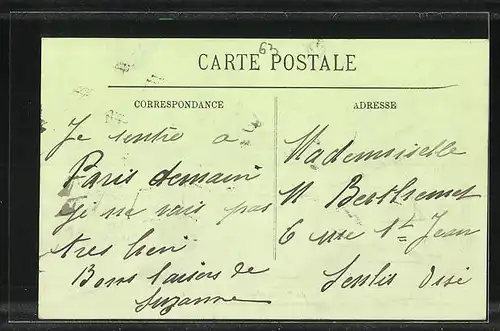 63
CARTE POSTALE
CORRESPONDANCE
Je rentre a
Paris demain
Je ne vais pas
tres bien
Bons baisers de
Suzanne
ADRESSE
Mademoiselle
M Berthemet
6 rue St Jean
Senlis Oise